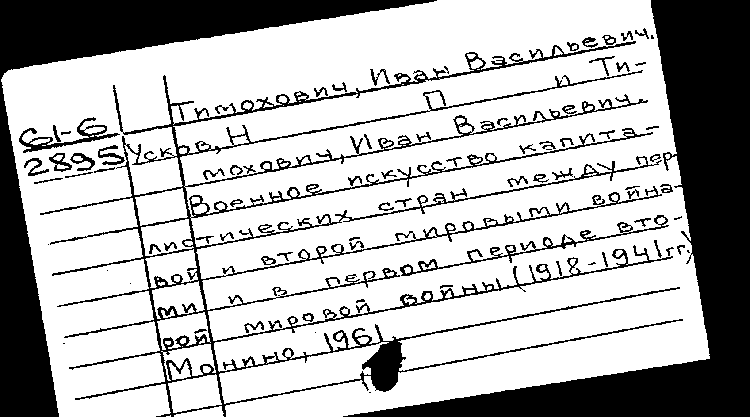 Тимохович, Иван Васильевич.
61-6
2895
Усков, Н П и Ти-
мохович, Иван Васильевич.
Военное искусство капита-
листических стран между пер
вой и второй мировыми война-
ми и в первом периоде вто-
рой мировой войны. (1918-1941гг.)
Монино, 1961.